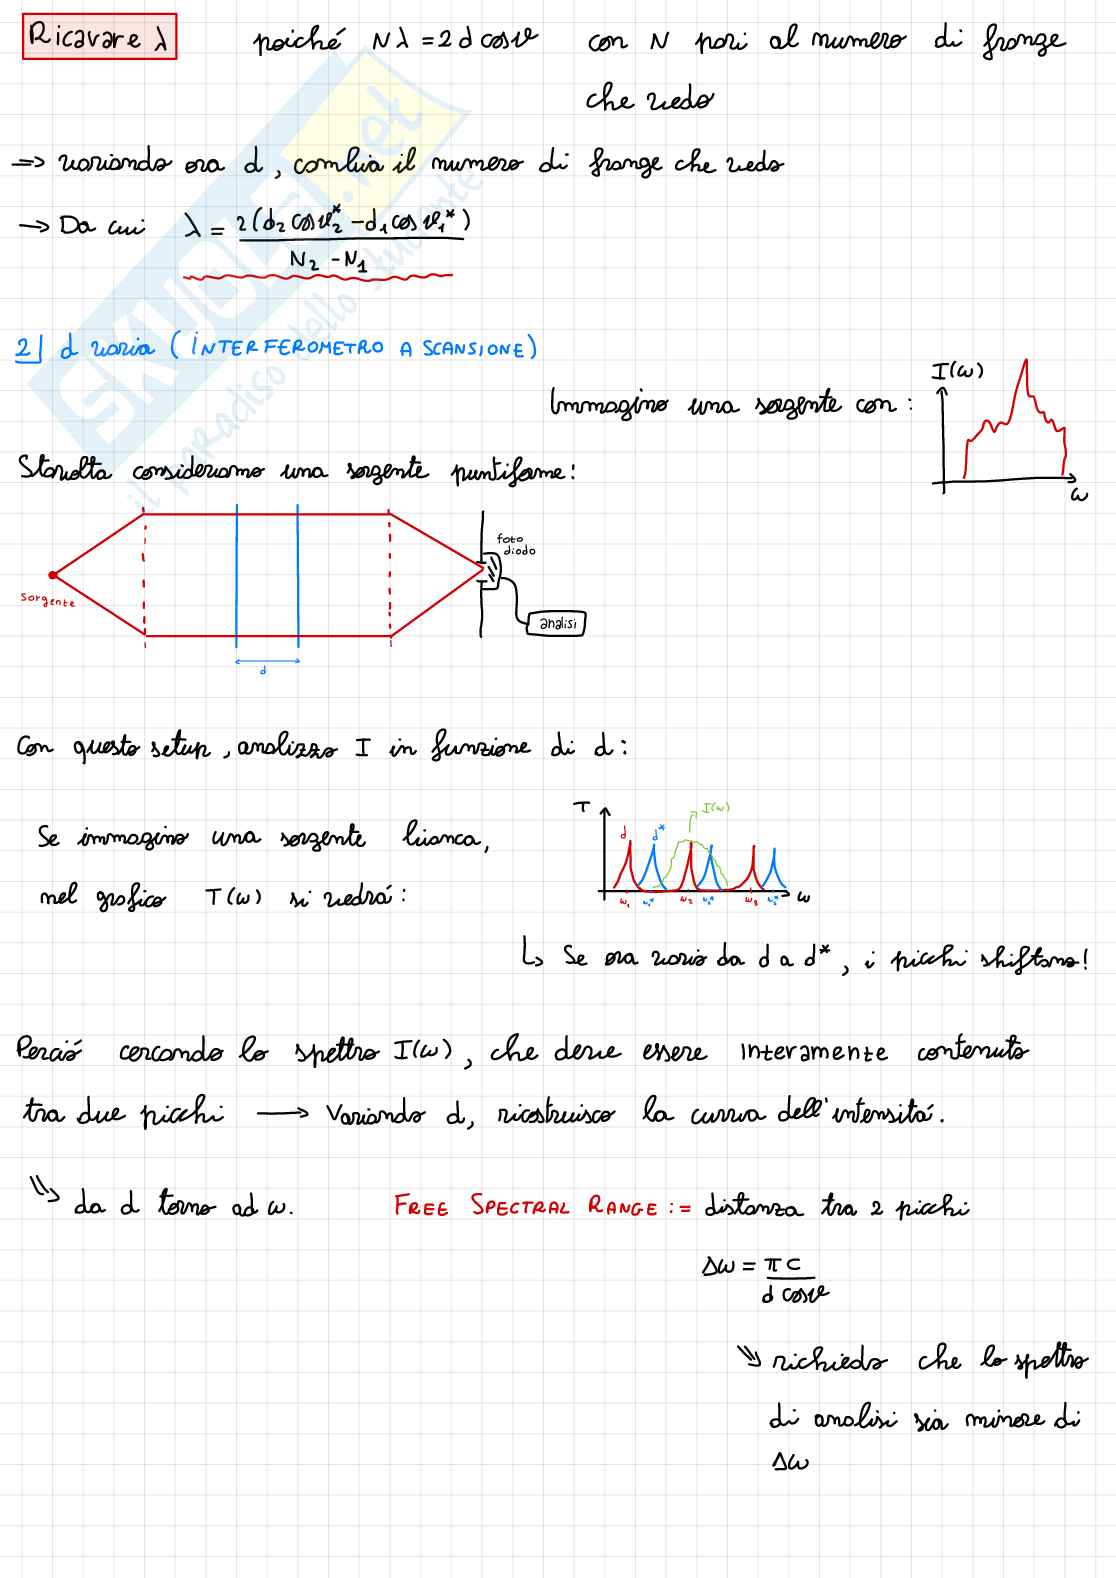 Ricavare λ poiché Nλ = 2 d cosϑ con N pari al numero di frange
che vedo
=> variando ora d, cambia il numero di frange che vedo
→ Da cui λ = 2(d₂ cosϑ₂* - d₁ cosϑ₁*) / N₂ - N₁
2| d varia (INTERFEROMETRO A SCANSIONE)
Immagino una sorgente con:
I(ω)
ω
Stavolta consideriamo una sorgente puntiforme:
sorgente
d
foto
diodo
analisi
Con questo setup, analizzo I in funzione di d:
Se immagino una sorgente bianca,
nel grafico T(ω) si vedrá:
T
d
d*
I(ω)
ω₁ ω₁* ω₂ ω₂* ω₃ ω₃*
ω
↳ Se ora vario da d a d*, i picchi shiftano!
Perció cercando lo spettro I(ω), che deve essere interamente contenuto
tra due picchi → Variando d, ricostruisco la curva dell'intensitá.
da d torno ad ω.
FREE SPECTRAL RANGE := distanza tra 2 picchi
Δω = πc / d cosϑ
richiedo che lo spettro
di analisi sia minore di
Δω
SKUOLA.net
il paradiso dello studente